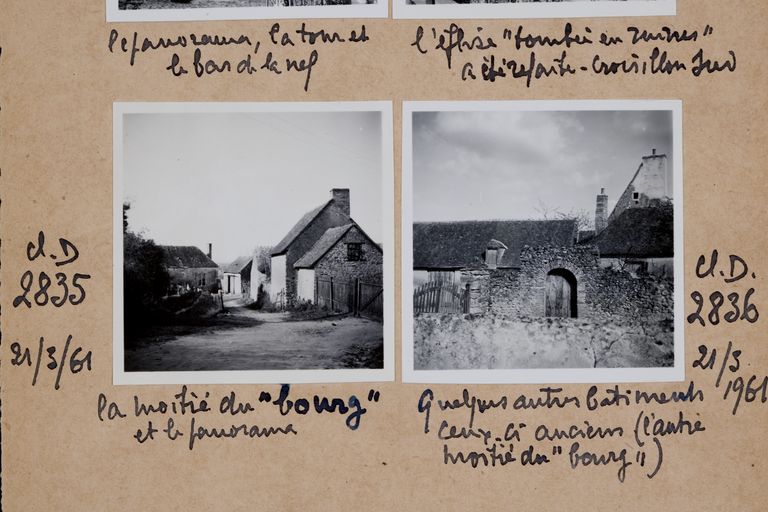 le panorama, la tour et
le bas de la nef
l'église "tombée en ruines"
a été refaite - Croisillon Sud
cl. D
2835
21/3/61
la moitié du "bourg"
et le panorama
cl. D.
2836
21/3
1961
Quelques autres bâtiments
ceux-ci anciens (l'autre
moitié du "bourg")